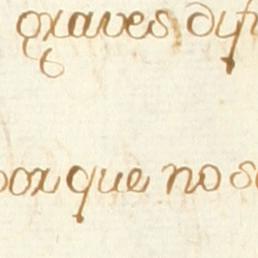 graves dif
porque no s